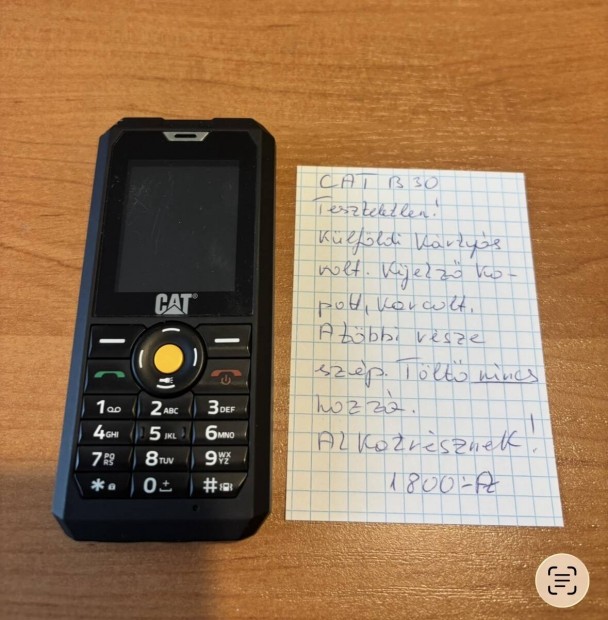 CAT
1
2 ABC
3 DEF
4 GHI
5 JKL
6 MNO
7 PQRS
8 TUV
9 WXYZ
*
0 +
#
CAT B30
Teszteletlen!
Külföldi kártyás
volt. Kijelző ko-
pott, karcolt.
A többi része
szép. Töltő nincs
hozzá.
Alkatrésznek!
1800.-Ft